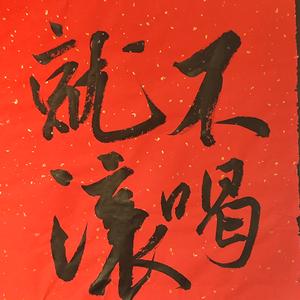 不喝
就滚